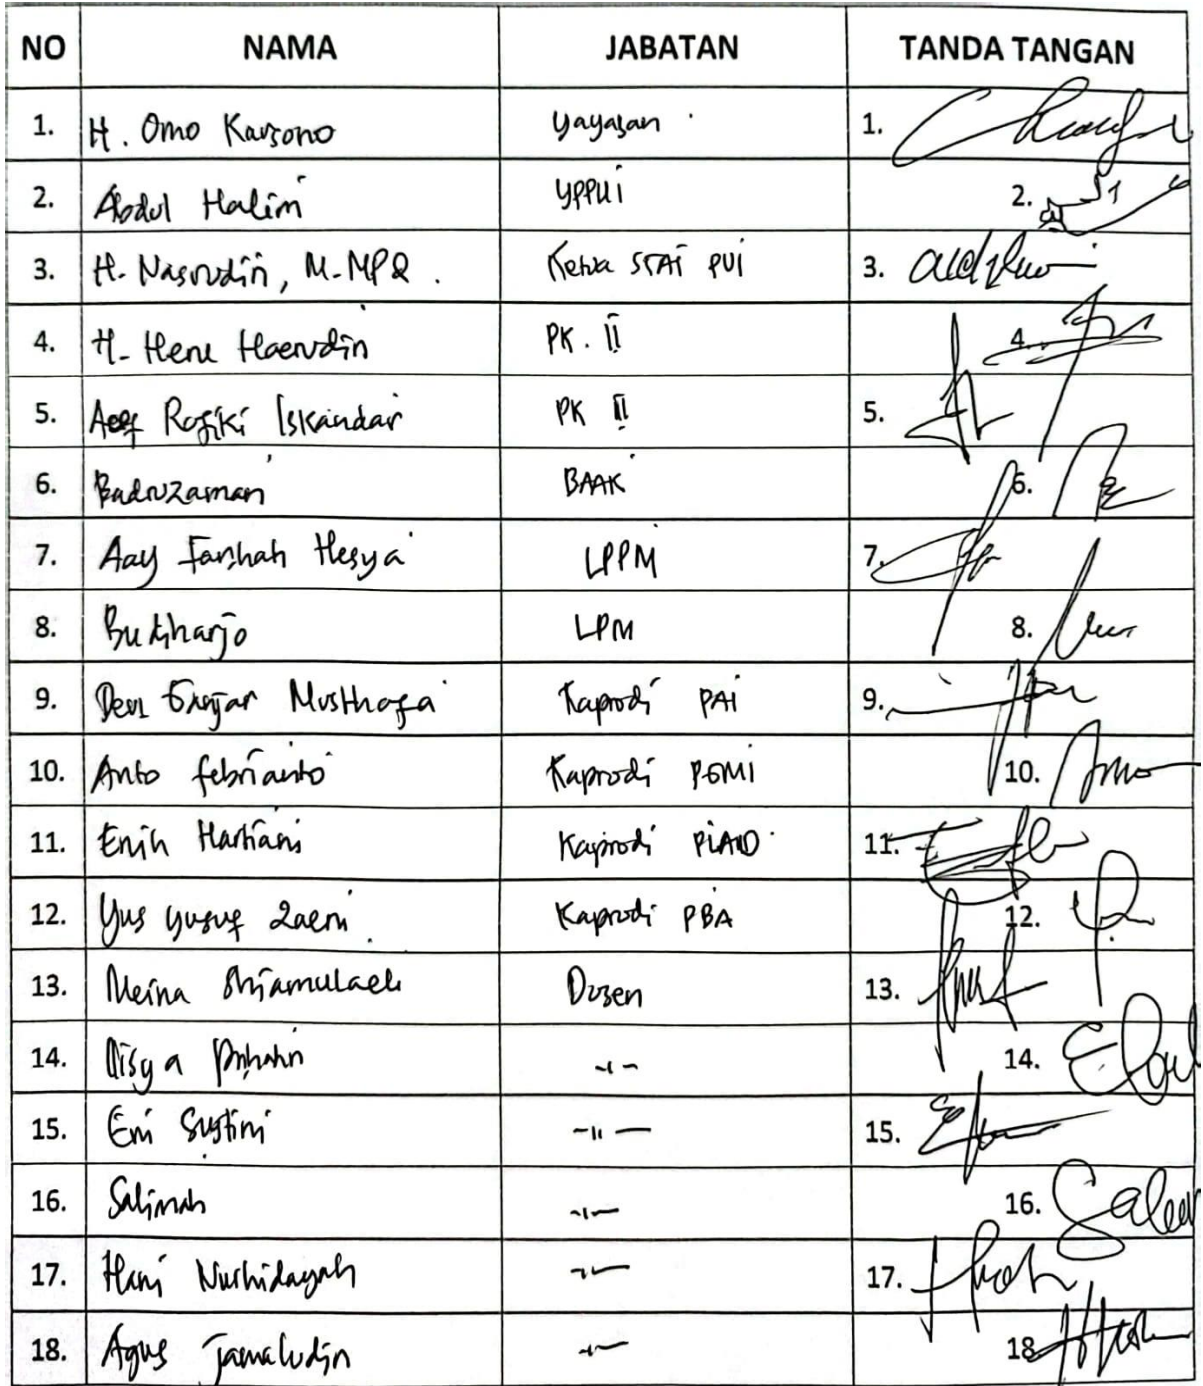 NO NAMA JABATAN TANDA TANGAN
1. H. Omo Karsono Yayasan 1.
2. Abdul Halim YPPUI 2.
3. H. Nasrudin, M.MPd. Ketua STAI PUI 3.
4. H. Heru Haerudin PK. II 4.
5. Rofiki Iskandar PK II 5.
6. Badruzaman BAAK 6.
7. Aay Farihah Hesya LPPM 7.
8. Budiharjo LPM 8.
9. Musthafa Kaprodi PAI 9.
10. Anto Febrianto Kaprodi PGMI 10.
11. Enih Kaprodi PIAUD 11.
12. Yus Yusuf Zaeni Kaprodi PBA 12.
13. Meina Dosen 13.
14. -"- 14.
15. Eni -"- 15.
16. Salimah -"- 16.
17. Hani Nurhidayah -"- 17.
18. Agus Jamaludin -"- 18